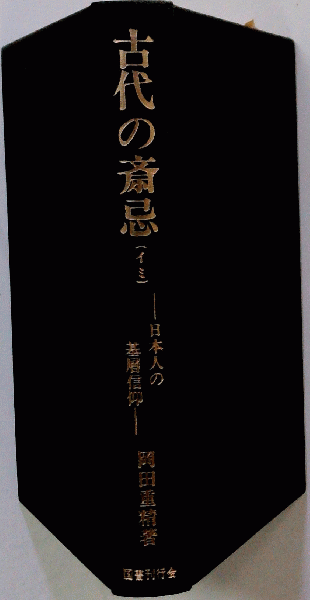 古代の斎忌(イミ)
―日本人の
基層信仰―
岡田重精著
国書刊行会